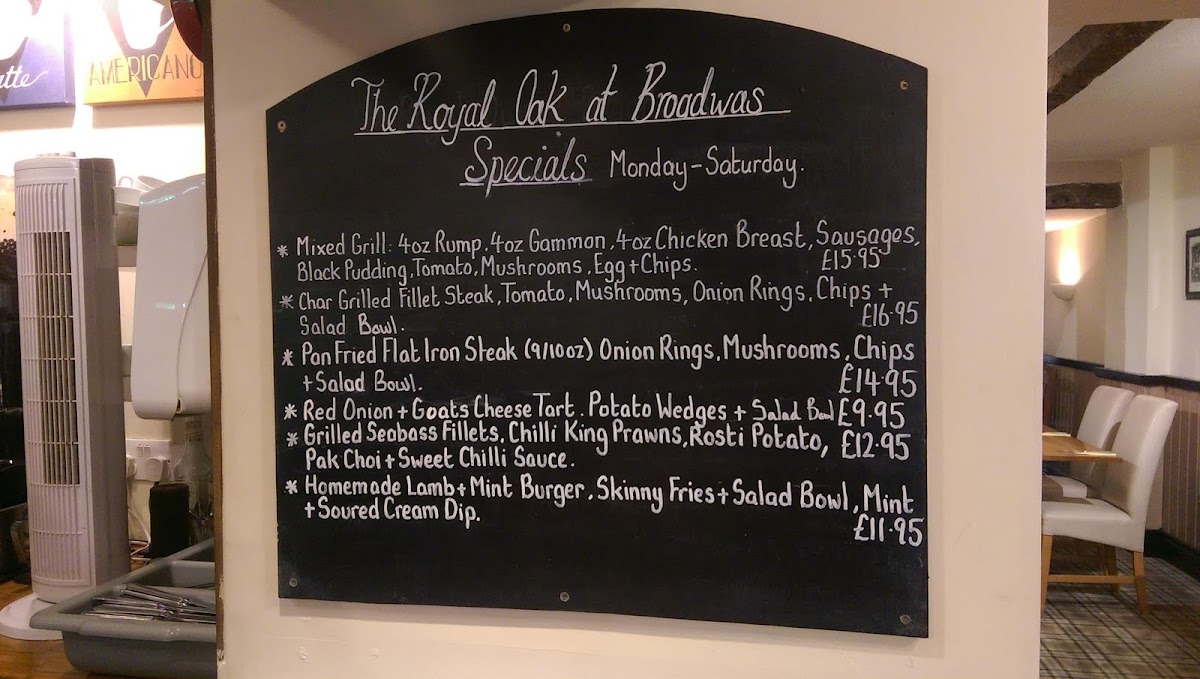 atte
AMERICANO
The Royal Oak at Broadwas
Specials Monday-Saturday.
* Mixed Grill: 4oz Rump, 4oz Gammon, 4oz Chicken Breast, Sausages,
Black Pudding, Tomato, Mushrooms, Egg + Chips. £15.95
* Char Grilled Fillet Steak, Tomato, Mushrooms, Onion Rings, Chips +
Salad Bowl. £16.95
* Pan Fried Flat Iron Steak (9/10oz) Onion Rings, Mushrooms, Chips
+ Salad Bowl. £14.95
* Red Onion + Goats Cheese Tart. Potato Wedges + Salad Bowl £9.95
* Grilled Seabass Fillets, Chilli King Prawns, Rosti Potato, £12.95
Pak Choi + Sweet Chilli Sauce.
* Homemade Lamb + Mint Burger, Skinny Fries + Salad Bowl, Mint
+ Soured Cream Dip. £11.95